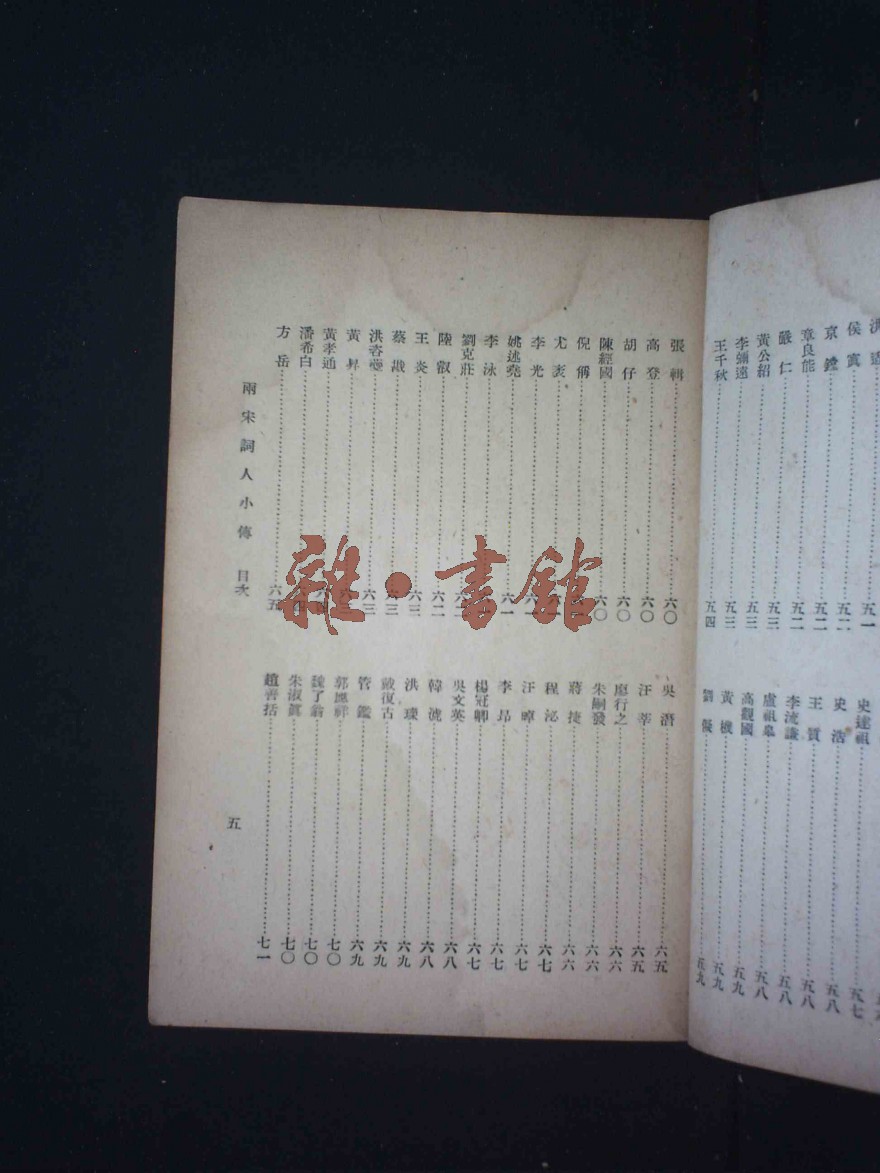 侯寘 五二
京鏜 五二
章良能 五二
嚴仁 五三
黃公紹 五三
李彌遠 五三
王千秋 五四
史達祖 五七
史浩 五八
王質 五八
李流謙 五八
盧祖皋 五八
高觀國 五九
黃機 五九
劉儗 五九
張輯 六〇
高登 六〇
胡仔 六〇
陳經國 六〇
倪偁
尤袤
李光
姚述堯 六一
李泳
劉克莊
陸叡 六二
王炎 六三
蔡戡 六三
洪咨夔 六三
黃昇
黃孝通
潘希白
方岳 六五
吳潛 六五
汪莘 六五
廖行之 六六
朱嗣發 六六
蔣捷 六六
程泌 六七
汪晫 六七
李昂 六七
楊冠卿 六七
吳文英 六八
韓淲 六八
洪瑹 六九
戴復古 六九
管鑑 六九
郭應祥 七〇
魏了翁 七〇
朱淑眞 七〇
趙善括 七一
兩宋詞人小傳 目次
五
雜·書館